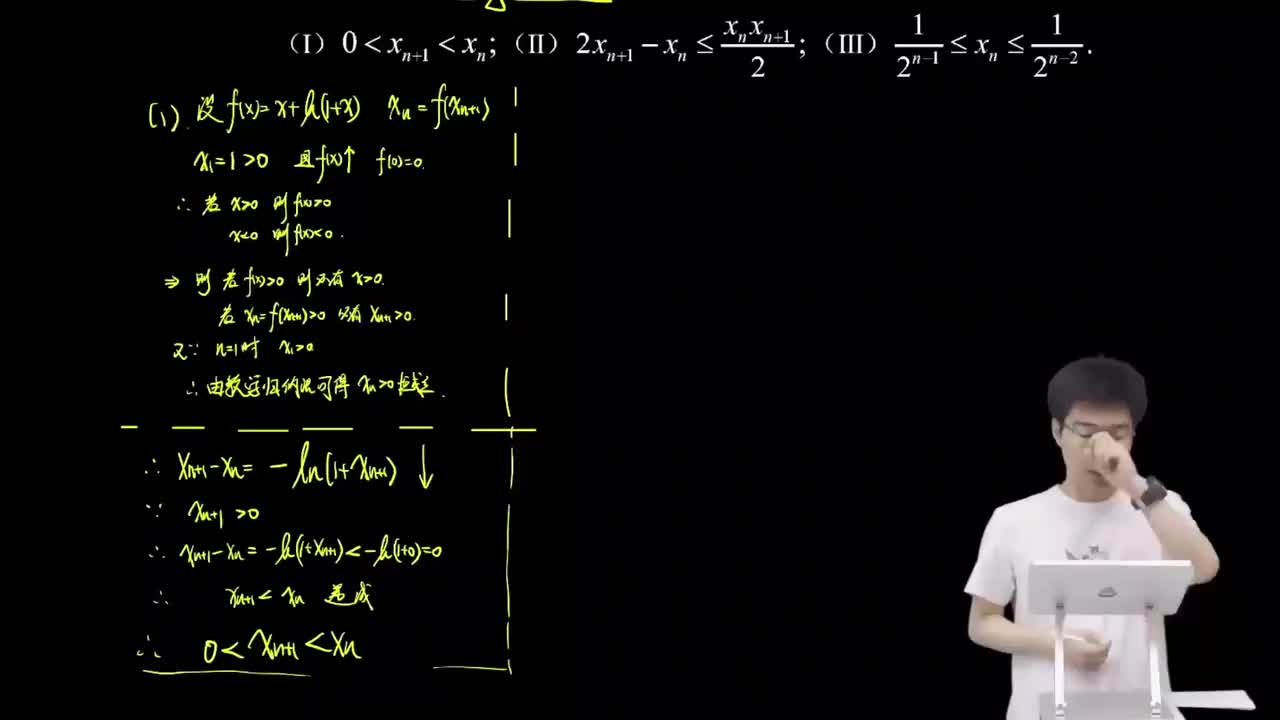 (Ⅰ) 0 < x_{n+1} < x_n; (Ⅱ) 2x_{n+1} − x_n ≤ \frac{x_n x_{n+1}}{2}; (Ⅲ) \frac{1}{2^{n−1}} ≤ x_n ≤ \frac{1}{2^{n−2}}.
(1). 设 f(x)=x+ln(1+x) x_n=f(x_{n+1})
x_1=1>0 且f(x)↑ f(0)=0.
∴ 若 x>0 则 f(x)>0
x<0 则f(x)<0.
⇒ 则 若 f(x)>0 则必有 x>0.
若 x_n=f(x_{n+1})>0 必有 x_{n+1}>0.
又∵ n=1时 x_1>0
∴由数学归纳法可得 x_n>0 恒成立.
∴ x_{n+1}-x_n= -ln(1+x_{n+1}) ↓
∵ x_{n+1}>0
∴ x_{n+1}-x_n=-ln(1+x_{n+1})<-ln(1+0)=0
∴ x_{n+1}<x_n 恒成
∴ 0<x_{n+1}<x_n